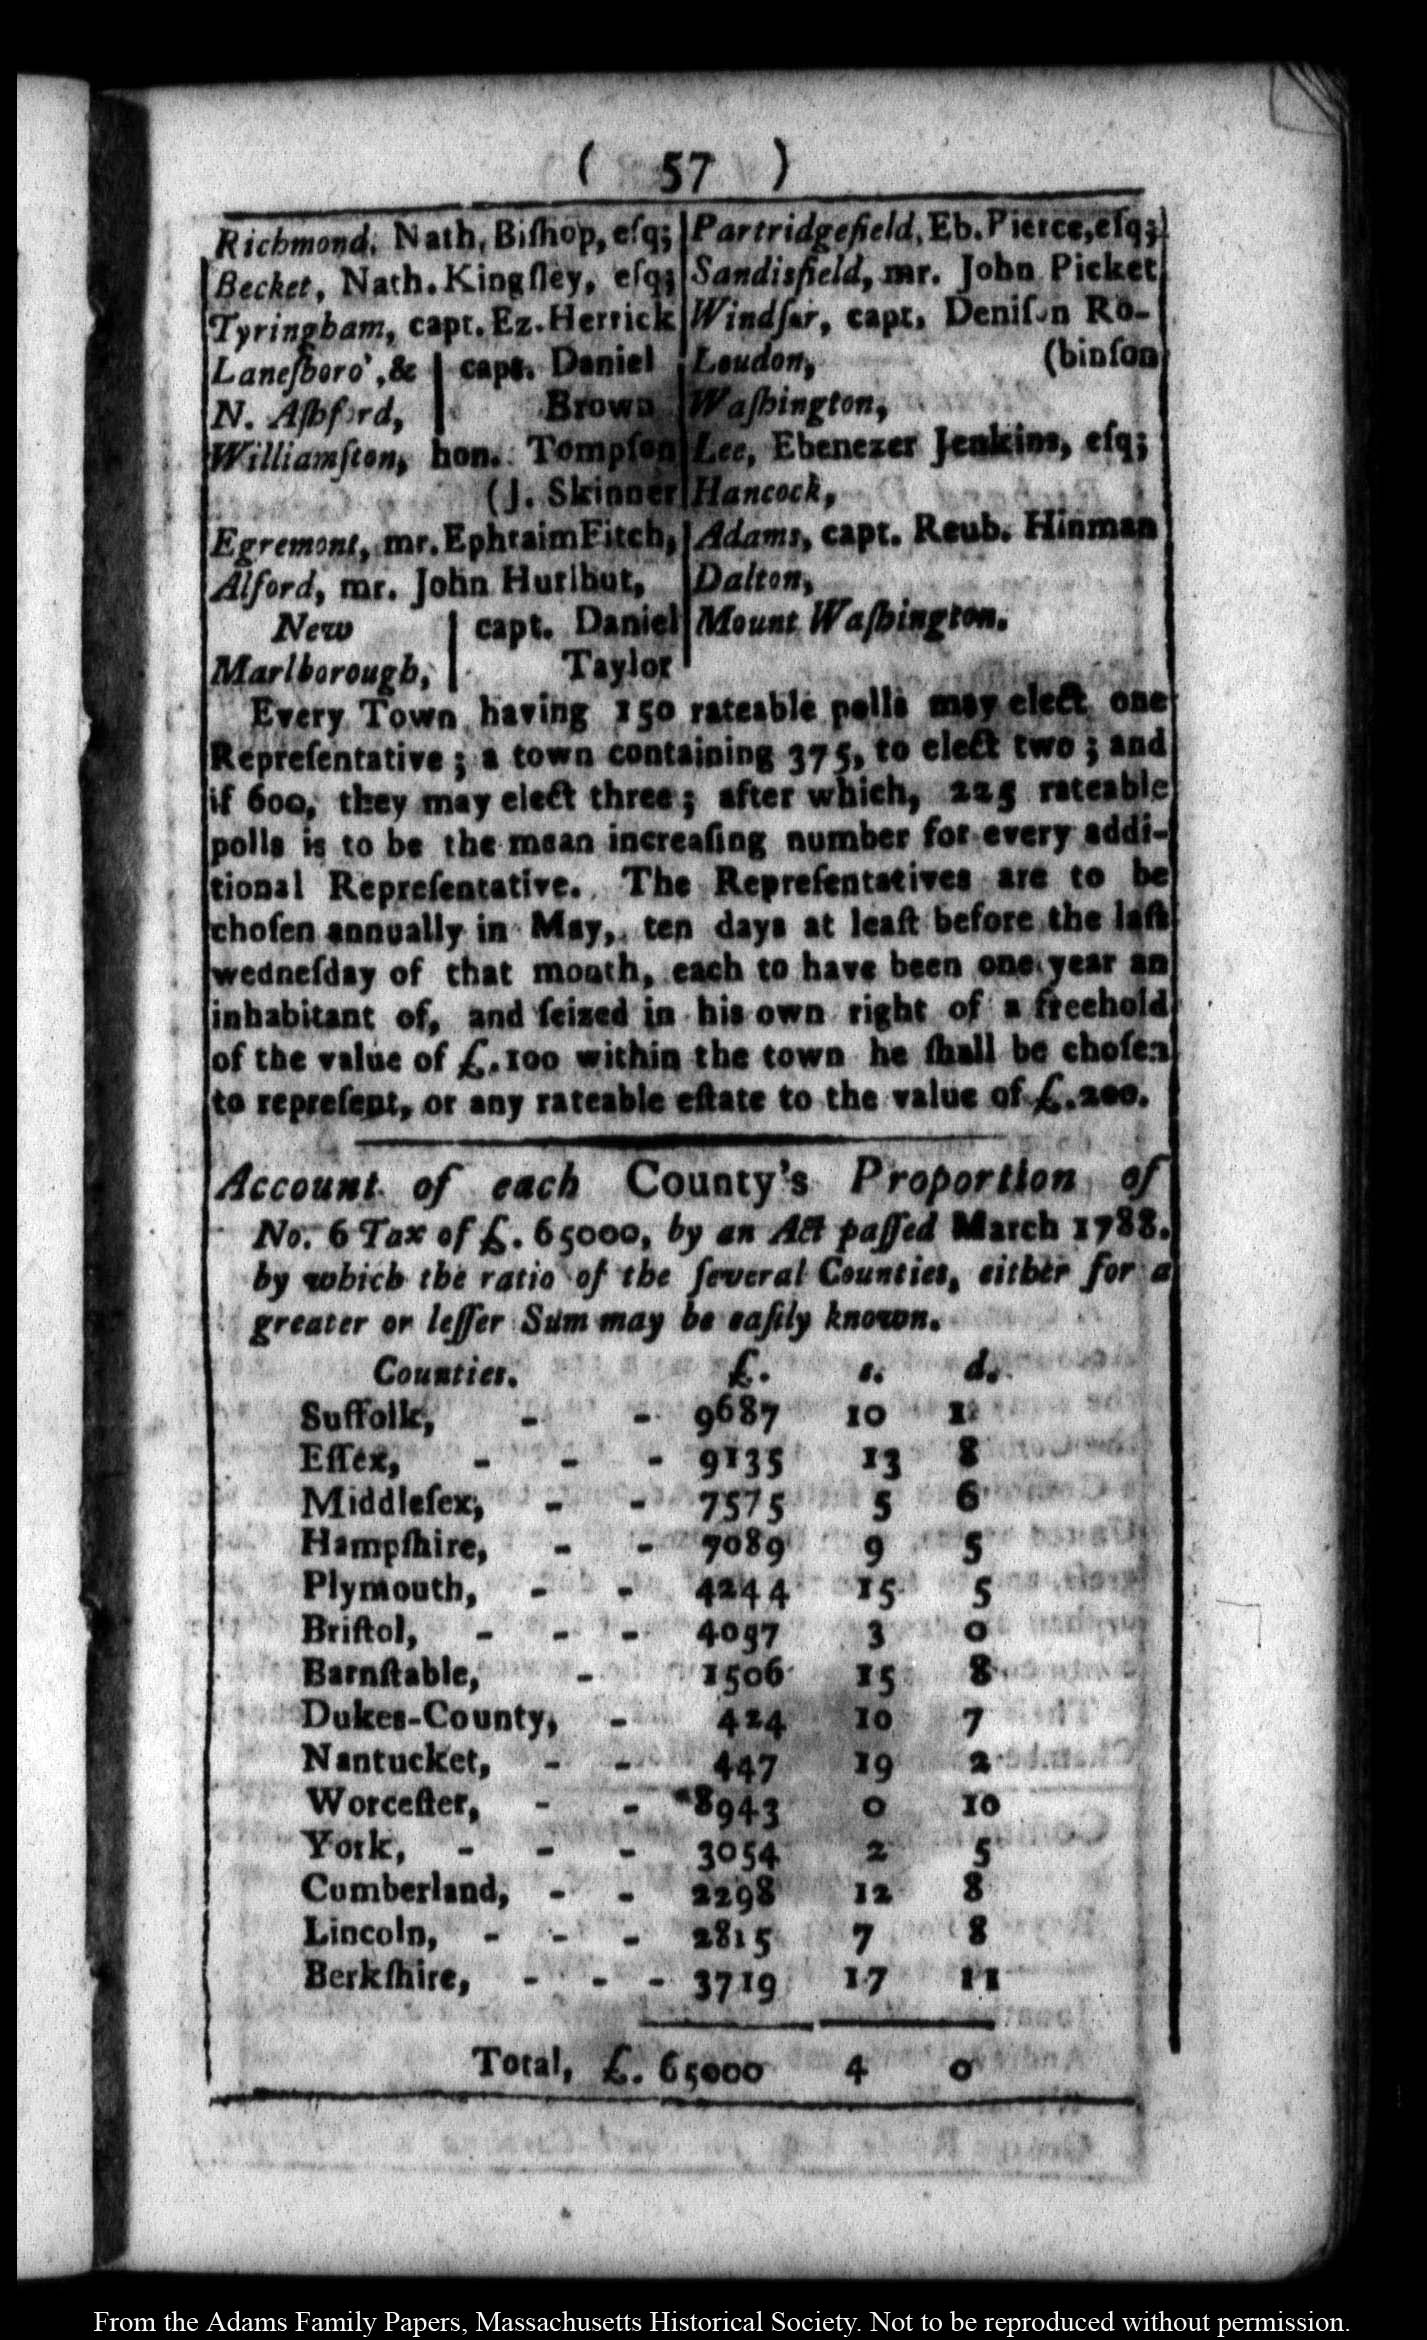 ( 57 )
Richmond, Nath. Biſhop, eſq;
Becket, Nath. Kingſley, eſq;
Tyringham, capt. Ez. Herrick
Laneſboro', & | capt. Daniel
N. Aſhford, | Brown
Williamſton, hon. Tompſon
(J. Skinner
Egremont, mr. Ephraim Fitch,
Alford, mr. John Hurlbut,
New | capt. Daniel
Marlborough, | Taylor
Partridgefield, Eb. Pierce, eſq;
Sandisfield, mr. John Picket
Windſor, capt. Deniſon Ro-
Loudon, (binſon
Waſhington,
Lee, Ebenezer Jenkins, eſq;
Hancock,
Adams, capt. Reub. Hinman
Dalton,
Mount Waſhington.
Every Town having 150 rateable polls may elect one
Repreſentative; a town containing 375, to elect two; and
if 600, they may elect three; after which, 225 rateable
polls is to be the mean increaſing number for every addi-
tional Repreſentative. The Repreſentatives are to be
choſen annually in May, ten days at leaſt before the laſt
wedneſday of that month, each to have been one year an
inhabitant of, and ſeized in his own right of a freehold
of the value of £.100 within the town he ſhall be choſen
to repreſent, or any rateable eſtate to the value of £.200.
Account of each County's Proportion of
No. 6 Tax of £. 65000, by an Act paſſed March 1788.
by which the ratio of the ſeveral Counties, either for a
greater or leſſer Sum may be eaſily known.
Counties. £. s. d.
Suffolk, - - 9687 10 1
Eſſex, - - - 9135 13 8
Middleſex, - - 7575 5 6
Hampſhire, - - 7089 9 5
Plymouth, - - 4244 15 5
Briſtol, - - - 4057 3 0
Barnſtable, - 1506 15 8
Dukes-County, - 424 10 7
Nantucket, - - 447 19 2
Worceſter, - - 8943 0 10
York, - - - 3054 2 5
Cumberland, - - 2298 12 8
Lincoln, - - - 2815 7 8
Berkſhire, - - - 3719 17 11
Total, £. 65000 4 0
From the Adams Family Papers, Massachusetts Historical Society. Not to be reproduced without permission.